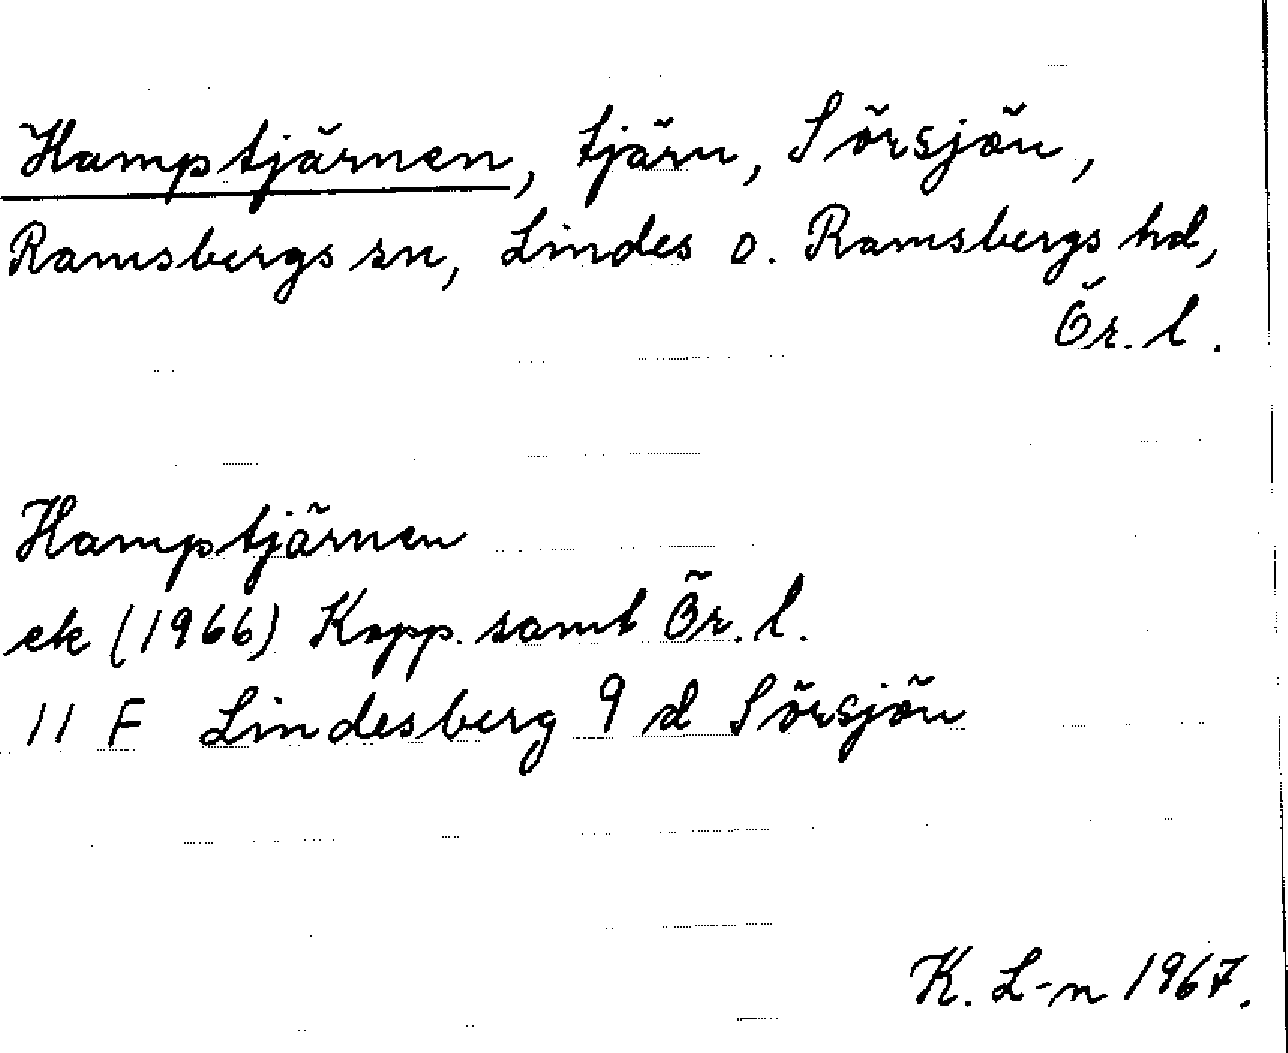 Hamptjärnen, tjärn, Sörsjön,
Ramsbergs sn, Lindes o. Ramsbergs hd,
Ör. l.
Hamptjärnen
ek (1966) Kopp. samt Ör. l.
11 F Lindesberg 9 d Sörsjön
K. L-n 1967.